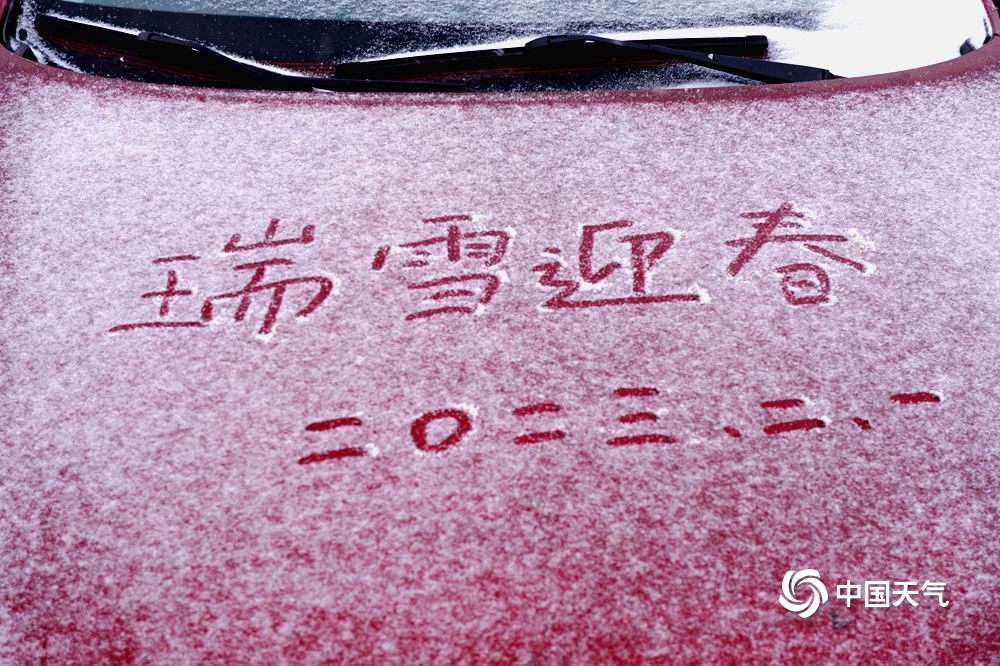 瑞雪迎春
二〇二三、二、一
中国天气